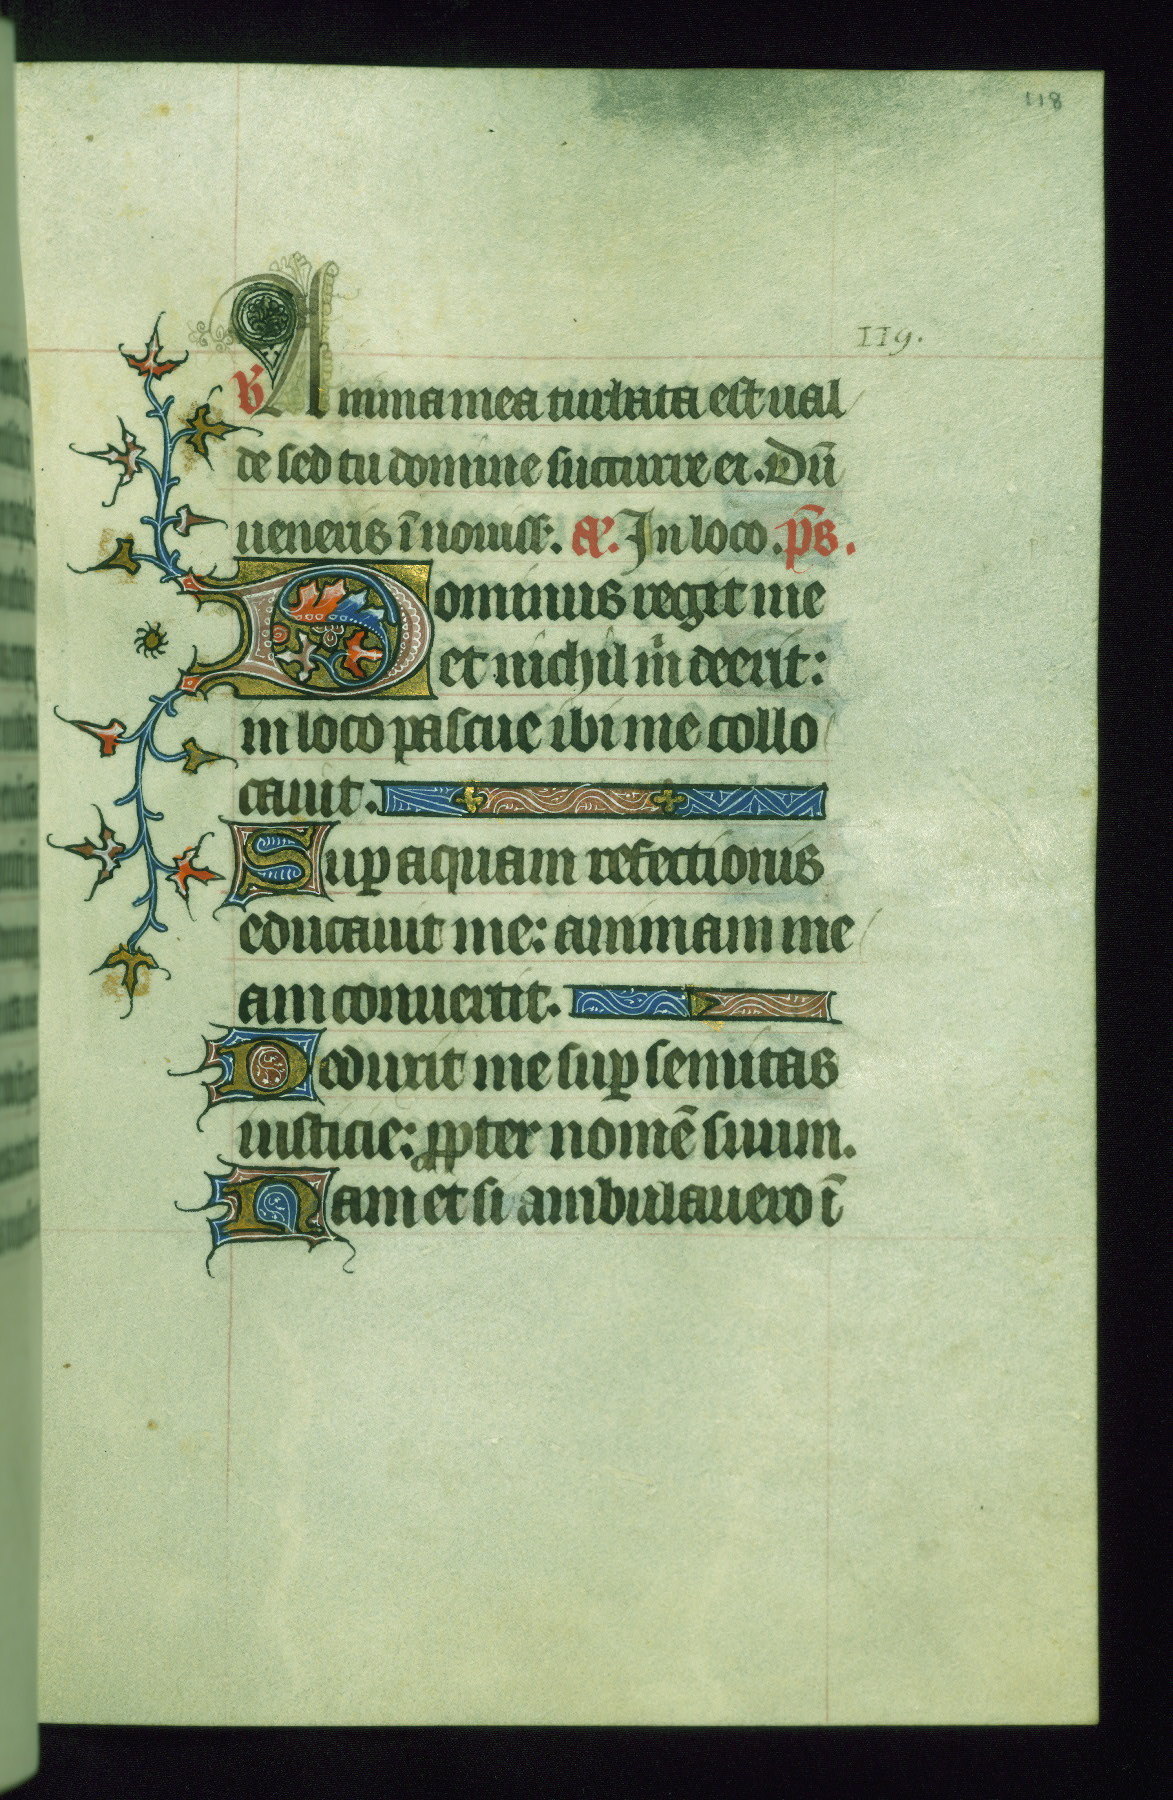 118
119.
V̄ Animamea turbata est ual
de sed tu domine succurre ei. Dū
ueneris ī nouiss̄. Añ. In loco. p̄s.
Dominus regit me
et nichil m̄ deerit:
in loco pascue ibi me collo
cauit.
Suꝑ aquam refectionis
educauit me: animam me
am conuertit.
Deduxit me suꝑ semitas
iusticie: ꝓpter nomē suum.
Nam et si ambulauero ī